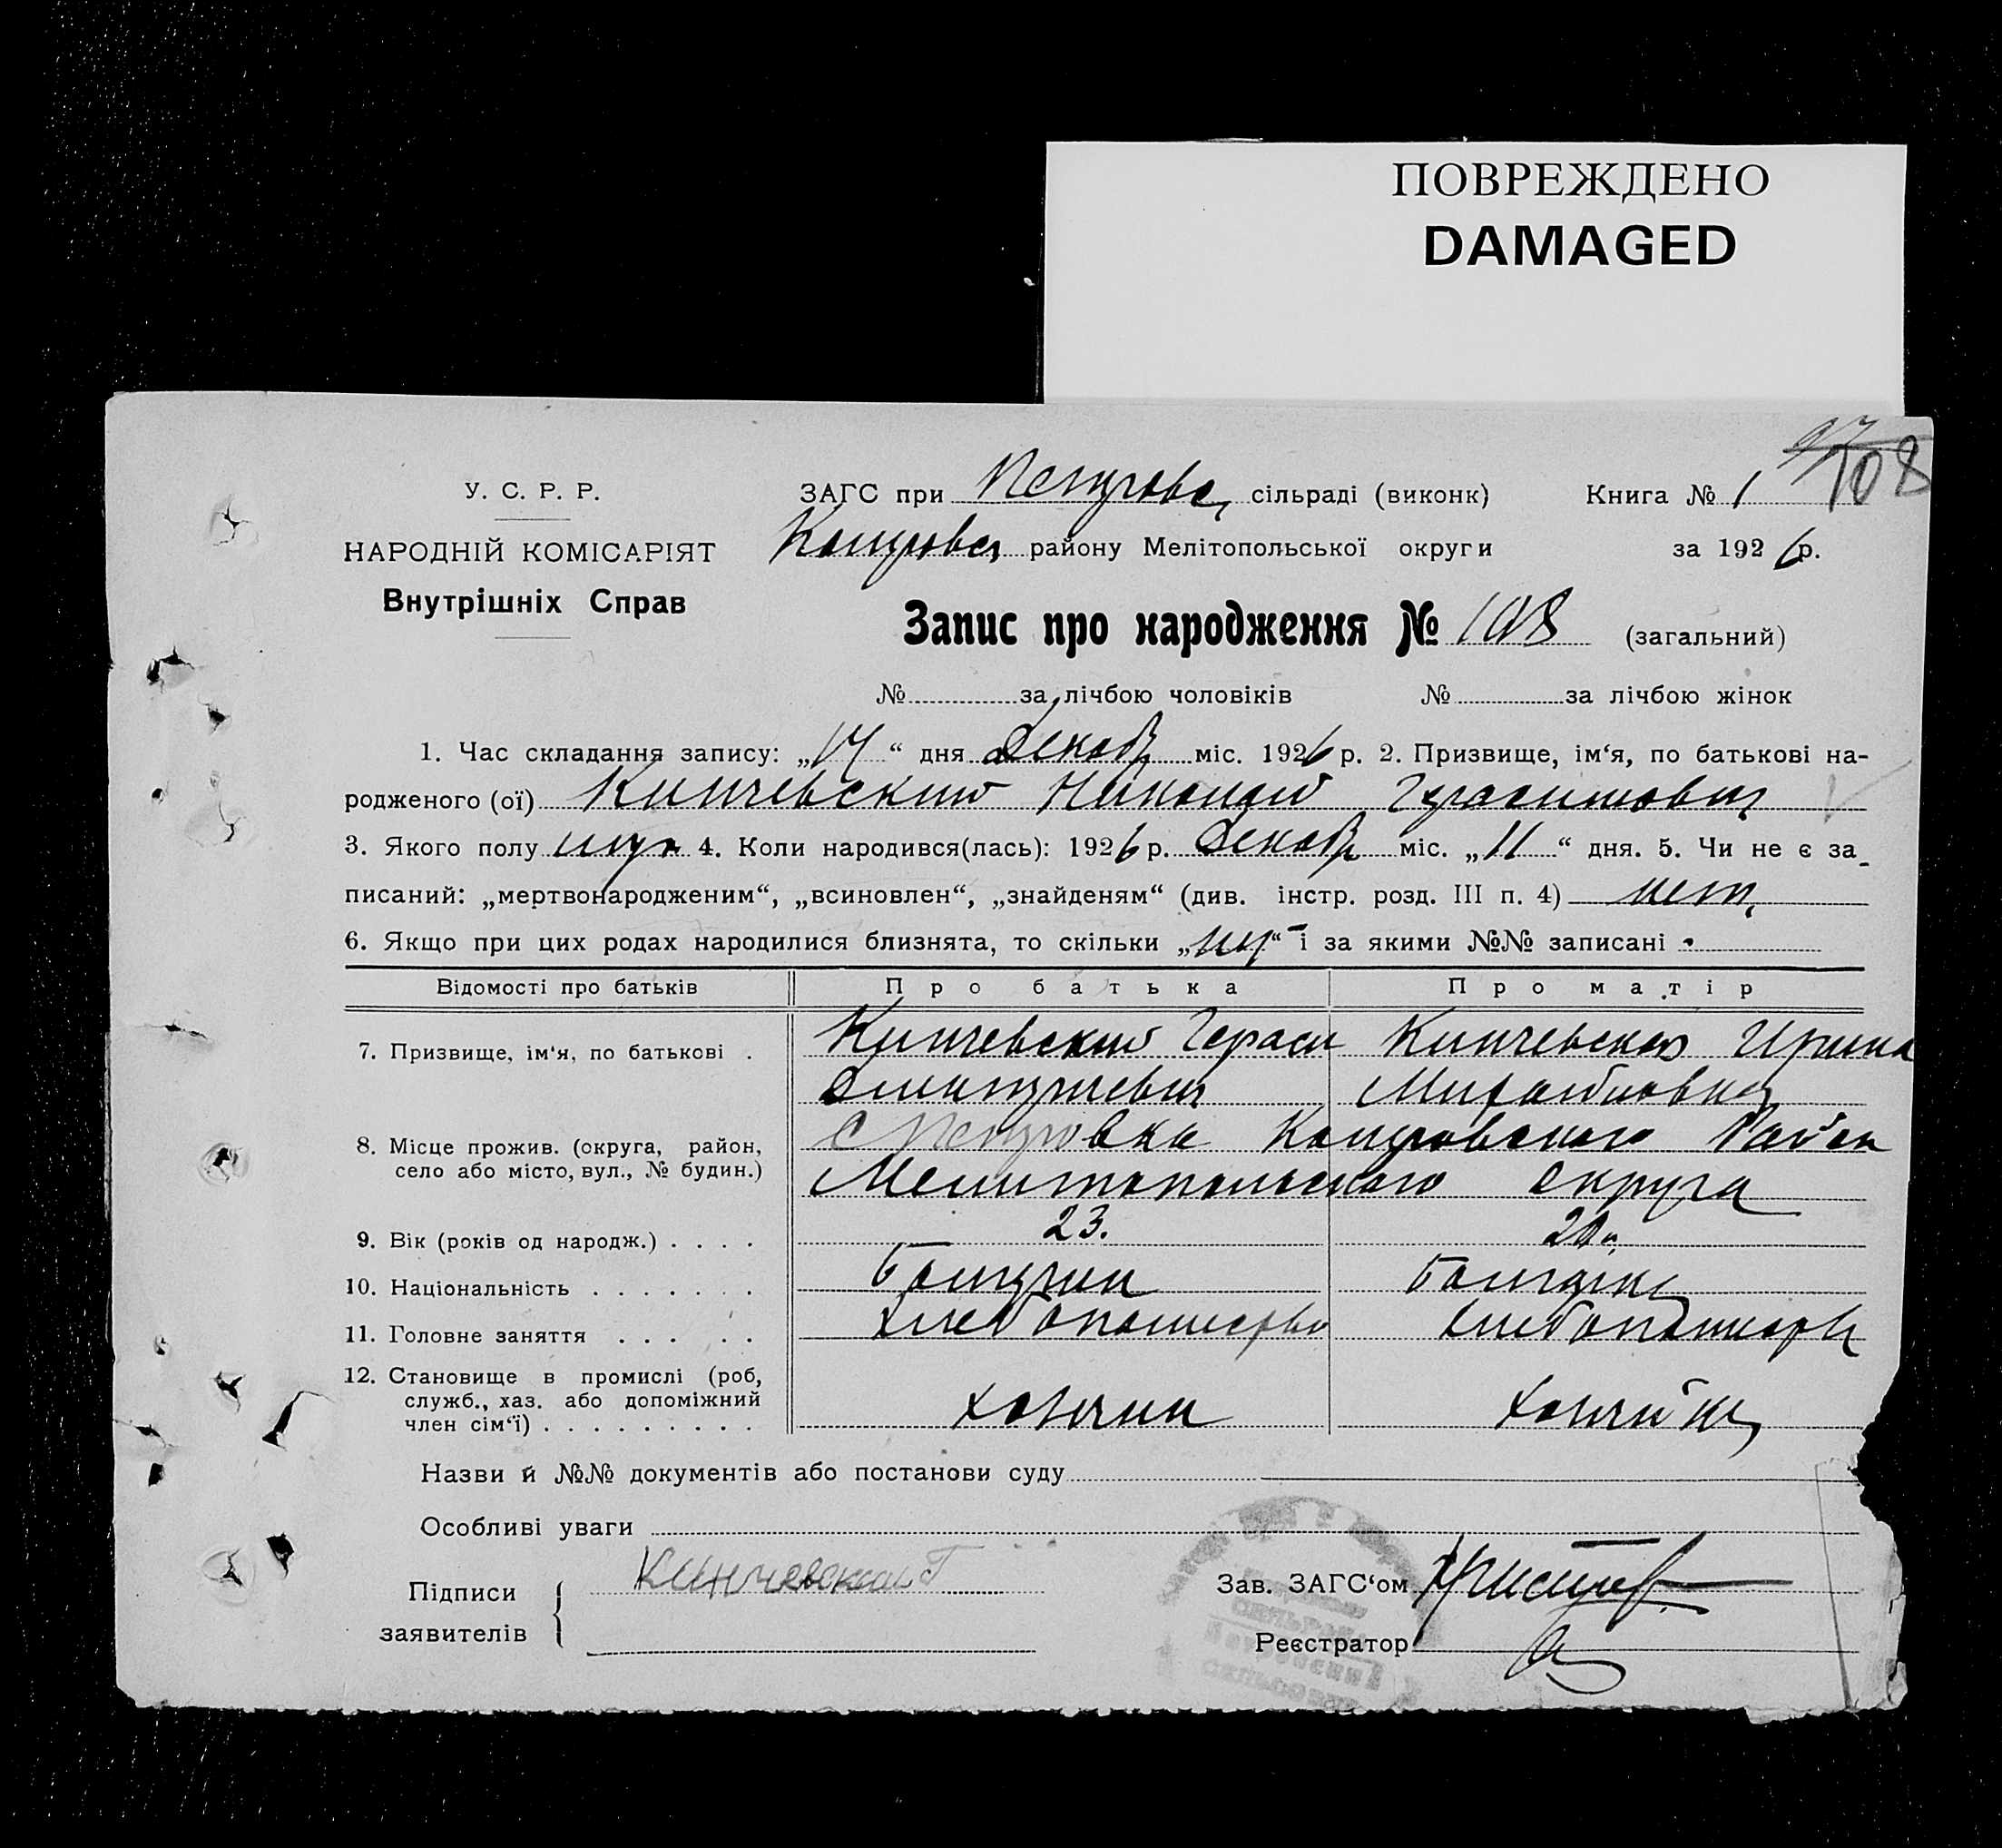 ПОВРЕЖДЕНО
DAMAGED
97
108
У. С. Р. Р.
ЗАГС при Петровс, сільраді (виконк)
Книга № 1
НАРОДНІЙ КОМІСАРІЯТ
районy Мелітопольської округи
за 1926 р.
Внутрішніх Справ
Запис про народження № 108 (загальний)
№ за лічбою чоловіків № за лічбою жінок
1. Час складання запису: „14“ дня Декабр міс. 1926 р. 2. Призвище, ім‘я, по батькові на-
родженого (ої) Кинчевский Николай Герасимович
3. Якого полу муж 4. Коли народився(лась): 1926 р. Декабр міс. „11“ дня. 5. Чи не є за-
писаний: „мертвонародженим“, „всиновлен“, „знайденям“ (див. інстр. розд. III п. 4) нет,
6. Якщо при цих родах народилися близнята, то скільки „ “ і за якими №№ записані
Відомості про батьків Про батька Про матір
7. Призвище, ім‘я, по батькові . Кинчевский Герасим Кинчевская Ирина
Дмитриевич Михайловна
8. Місце прожив. (округа, район, с Петровка Района
село або місто, вул., № будин.) Мелитопольского округа
9. Вік (років од народж.) . . . . 23. 20
10. Національність . . . . . . . Болгарин Болгарка
11. Головне заняття . . . . . Хлебопашество хлебопашеств
12. Становище в промислі (роб,
служб., хаз. або допоміжний хозяин хозяйка
член сім‘ї) . . . . . . . . .
Назви й №№ документів або постанови суду
Особливі уваги
Підписи Кинчевский Г
заявителів
Зав. ЗАГС‘ом
Реєстратор